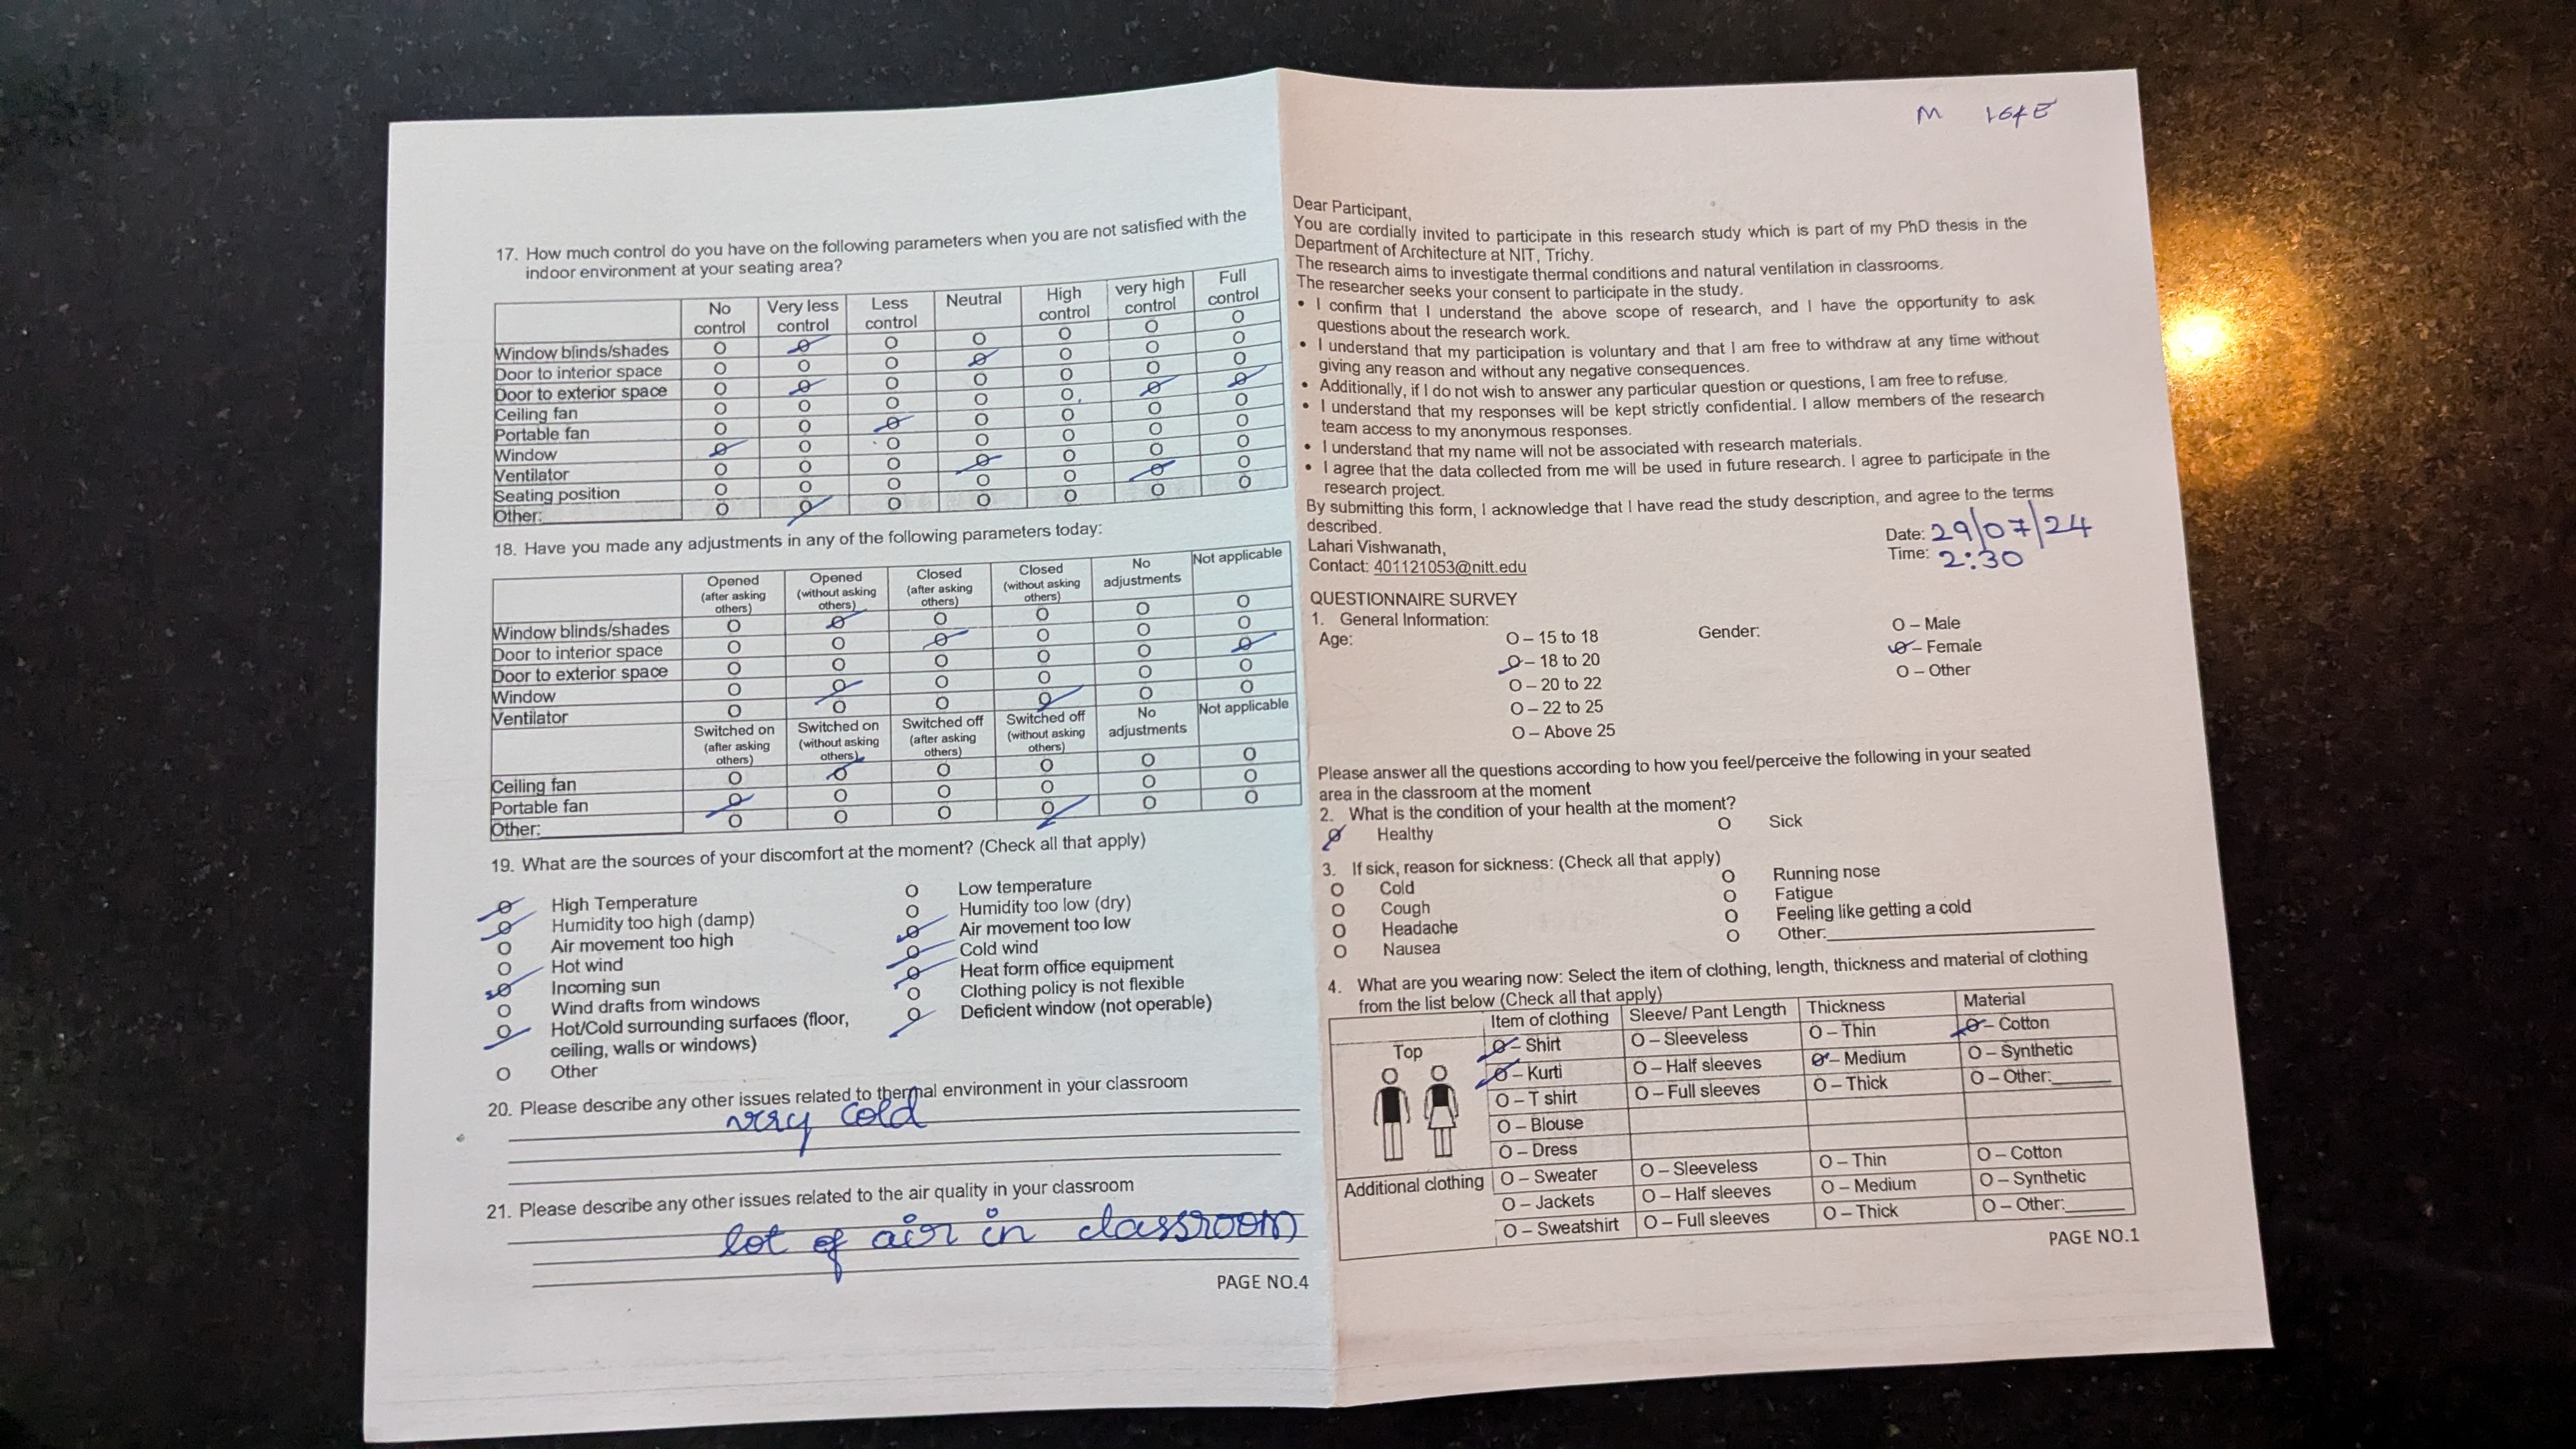 17. How much control do you have on the following parameters when you are not satisfied with the
indoor environment at your seating area?
No control Very less control Less control Neutral High control very high control Full control
Window blinds/shades O O O O O O O
Door to interior space O O O O O O O
Door to exterior space O O O O O O O
Ceiling fan O O O O O O O
Portable fan O O O O O O O
Window O O O O O O O
Ventilator O O O O O O O
Seating position O O O O O O O
Other: O O O O O O O
18. Have you made any adjustments in any of the following parameters today:
Opened (after asking others) Opened (without asking others) Closed (after asking others) Closed (without asking others) No adjustments Not applicable
Window blinds/shades O O O O O O
Door to interior space O O O O O O
Door to exterior space O O O O O O
Window O O O O O O
Ventilator O O O O O O
Switched on (after asking others) Switched on (without asking others) Switched off (after asking others) Switched off (without asking others) No adjustments Not applicable
Ceiling fan O O O O O O
Portable fan O O O O O O
Other: O O O O O O
19. What are the sources of your discomfort at the moment? (Check all that apply)
O High Temperature O Low temperature
O Humidity too high (damp) O Humidity too low (dry)
O Air movement too high O Air movement too low
O Hot wind O Cold wind
O Incoming sun O Heat form office equipment
O Wind drafts from windows O Clothing policy is not flexible
O Hot/Cold surrounding surfaces (floor, O Deficient window (not operable)
ceiling, walls or windows)
O Other
20. Please describe any other issues related to thermal environment in your classroom
very cold
21. Please describe any other issues related to the air quality in your classroom
lot of air in classroom
PAGE NO.4
M
Dear Participant,
You are cordially invited to participate in this research study which is part of my PhD thesis in the
Department of Architecture at NIT, Trichy.
The research aims to investigate thermal conditions and natural ventilation in classrooms.
The researcher seeks your consent to participate in the study.
• I confirm that I understand the above scope of research, and I have the opportunity to ask
questions about the research work.
• I understand that my participation is voluntary and that I am free to withdraw at any time without
giving any reason and without any negative consequences.
• Additionally, if I do not wish to answer any particular question or questions, I am free to refuse.
• I understand that my responses will be kept strictly confidential. I allow members of the research
team access to my anonymous responses.
• I understand that my name will not be associated with research materials.
• I agree that the data collected from me will be used in future research. I agree to participate in the
research project.
By submitting this form, I acknowledge that I have read the study description, and agree to the terms
described.
Lahari Vishwanath, Date: 29/07/24
Contact: 401121053@nitt.edu Time: 2:30
QUESTIONNAIRE SURVEY
1. General Information:
Age: O – 15 to 18 Gender: O – Male
O – 18 to 20 O – Female
O – 20 to 22 O – Other
O – 22 to 25
O – Above 25
Please answer all the questions according to how you feel/perceive the following in your seated
area in the classroom at the moment
2. What is the condition of your health at the moment?
O Healthy O Sick
3. If sick, reason for sickness: (Check all that apply)
O Cold O Running nose
O Cough O Fatigue
O Headache O Feeling like getting a cold
O Nausea O Other:
4. What are you wearing now: Select the item of clothing, length, thickness and material of clothing
from the list below (Check all that apply)
Item of clothing Sleeve/ Pant Length Thickness Material
Top O – Shirt O – Sleeveless O – Thin O – Cotton
O – Kurti O – Half sleeves O – Medium O – Synthetic
O – T shirt O – Full sleeves O – Thick O – Other:
O – Blouse
O – Dress
Additional clothing O – Sweater O – Sleeveless O – Thin O – Cotton
O – Jackets O – Half sleeves O – Medium O – Synthetic
O – Sweatshirt O – Full sleeves O – Thick O – Other:
PAGE NO.1